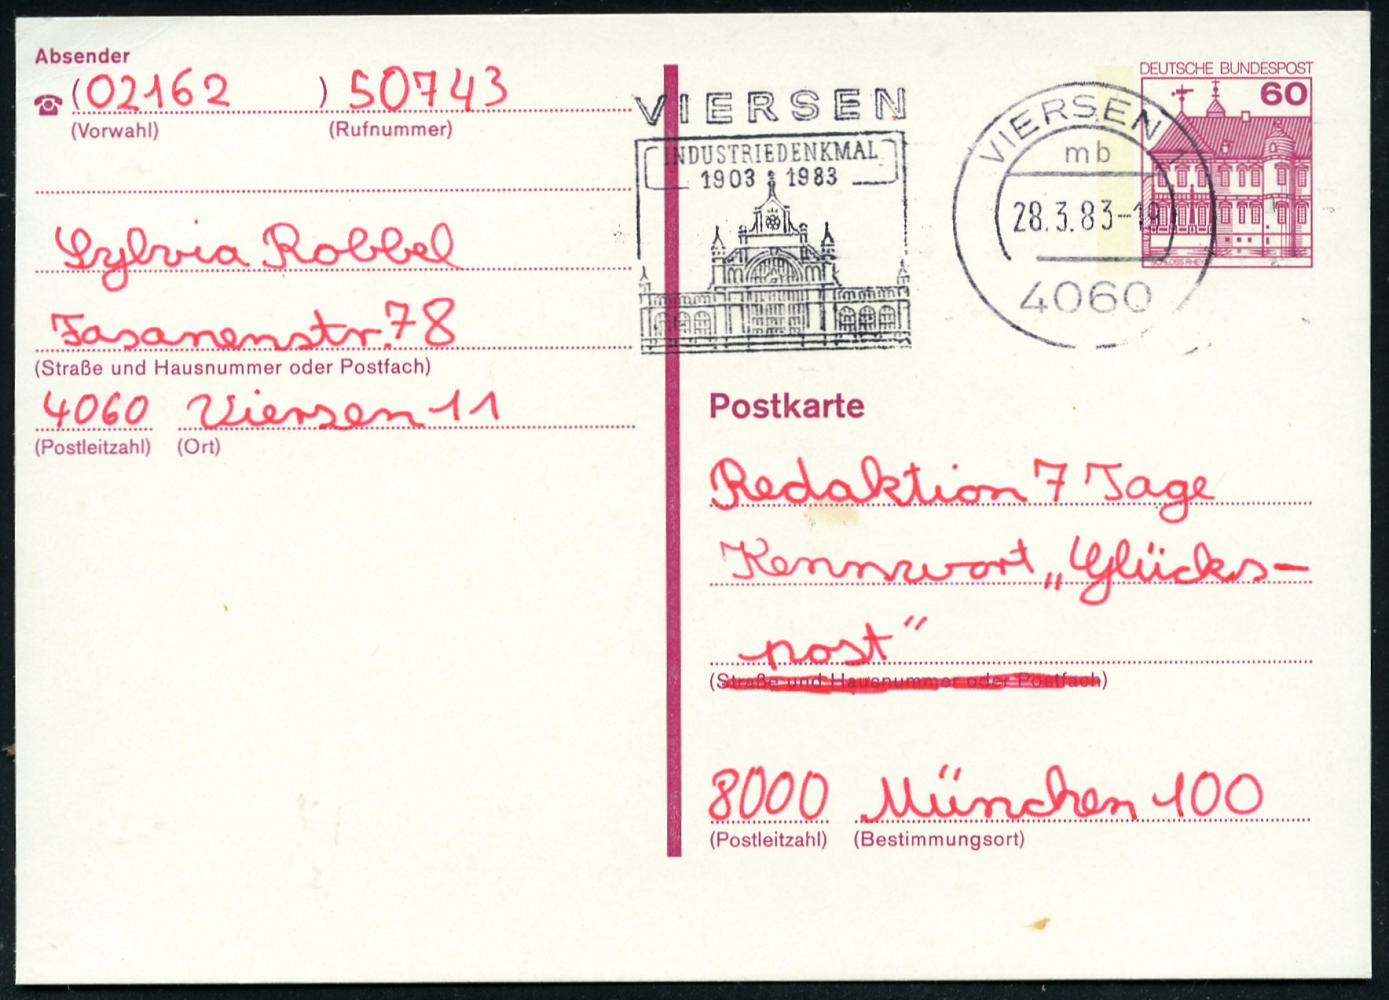 Absender
(02162) 50743
(Vorwahl) (Rufnummer)
Sylvia Robbel
Fasanenstr. 78
(Straße und Hausnummer oder Postfach)
4060 Viersen 11
(Postleitzahl) (Ort)
VIERSEN
INDUSTRIEDENKMAL
1903 1983
VIERSEN 1
mb
28.3.83-19
4060
DEUTSCHE BUNDESPOST
60
SCHLOSS RHEYDT
Postkarte
Redaktion 7 Tage
Kennwort „Glücks-
post"
(Straße und Hausnummer oder Postfach)
8000 München 100
(Postleitzahl) (Bestimmungsort)